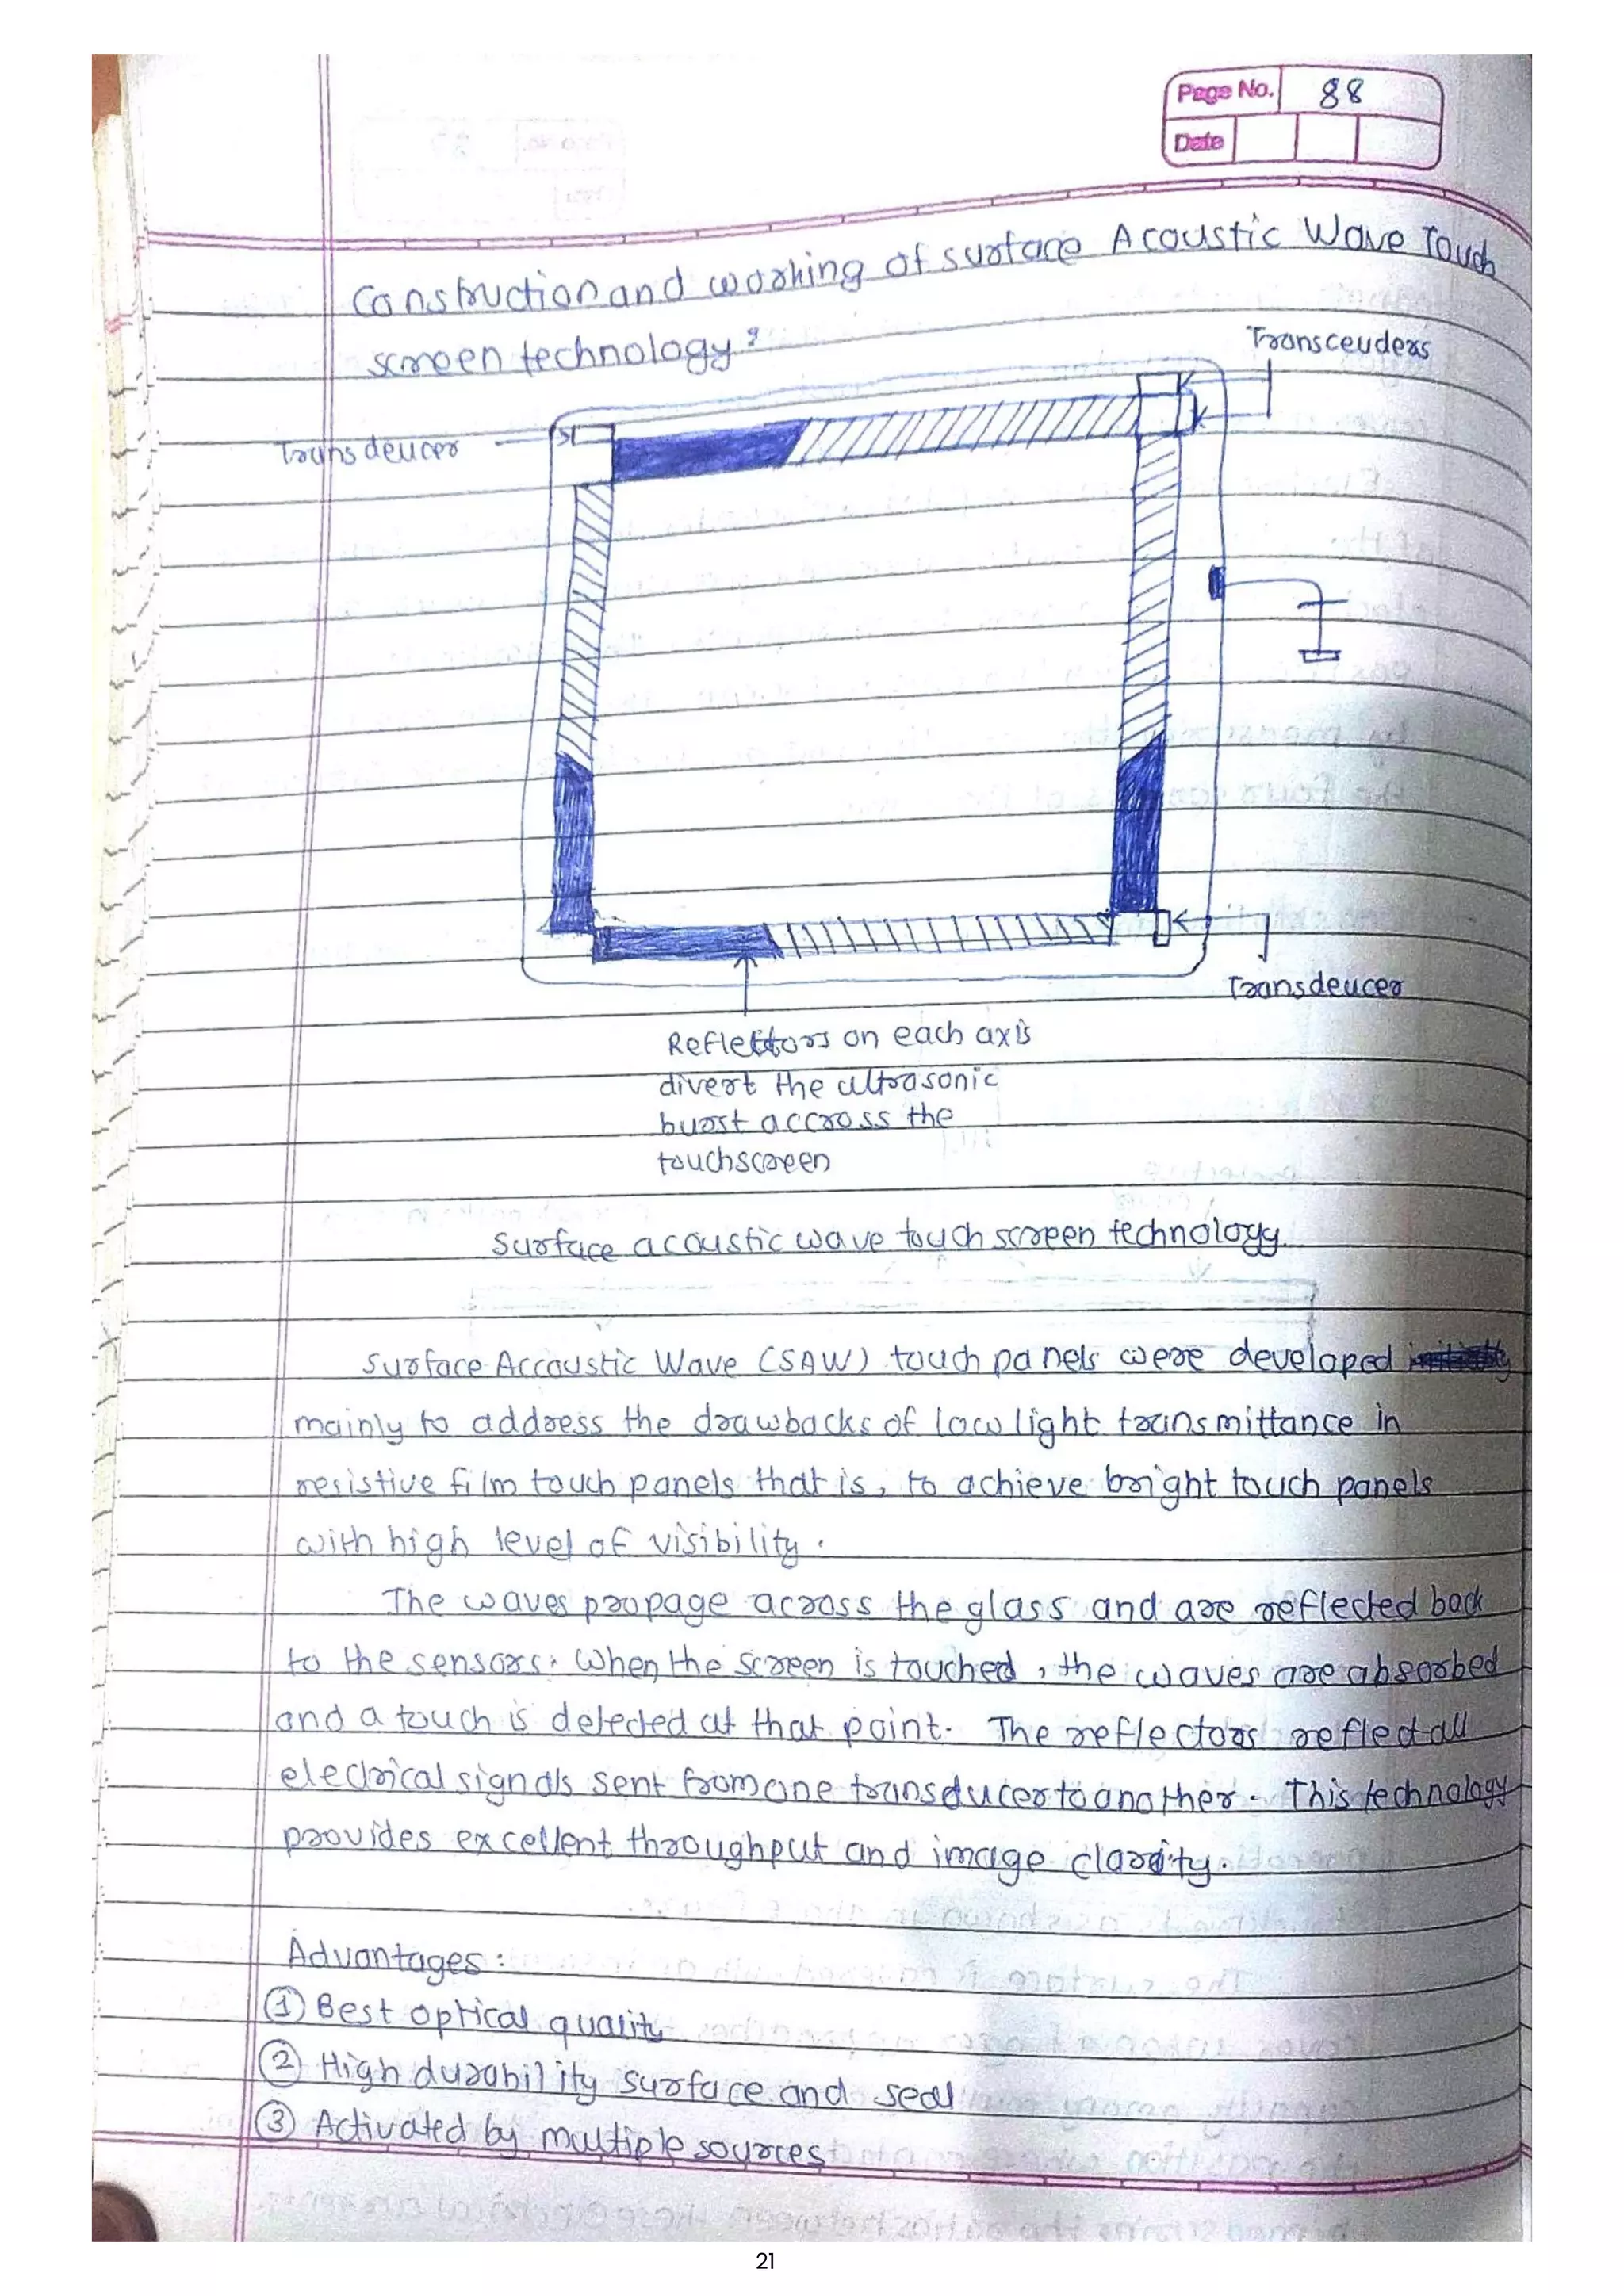 Page No. 88
Date
Construction and working of surface Acoustic Wave Touch
screen technology?
Transceuders
Transdeucer
Transdeucer
Reflectors on each axis
divert the ultrasonic
burst accross the
touchscreen
Surface acoustic wave touch screen technology.
Surface Accoustic Wave (SAW) touch panels were developed
mainly to address the drawbacks of low light transmittance in
resistive film touch panels that is, to achieve bright touch panels
with high level of visibility.
The waves propage across the glass and are reflected back
to the sensors. When the screen is touched, the waves are absorbed
and a touch is detected at that point. The reflectors reflect all
electrical signals sent from one transducer to another. This technology
provides excellent throughput and image clarity.
Advantages:
① Best optical quality
② High durability surface and seal
③ Activated by multiple sources
21